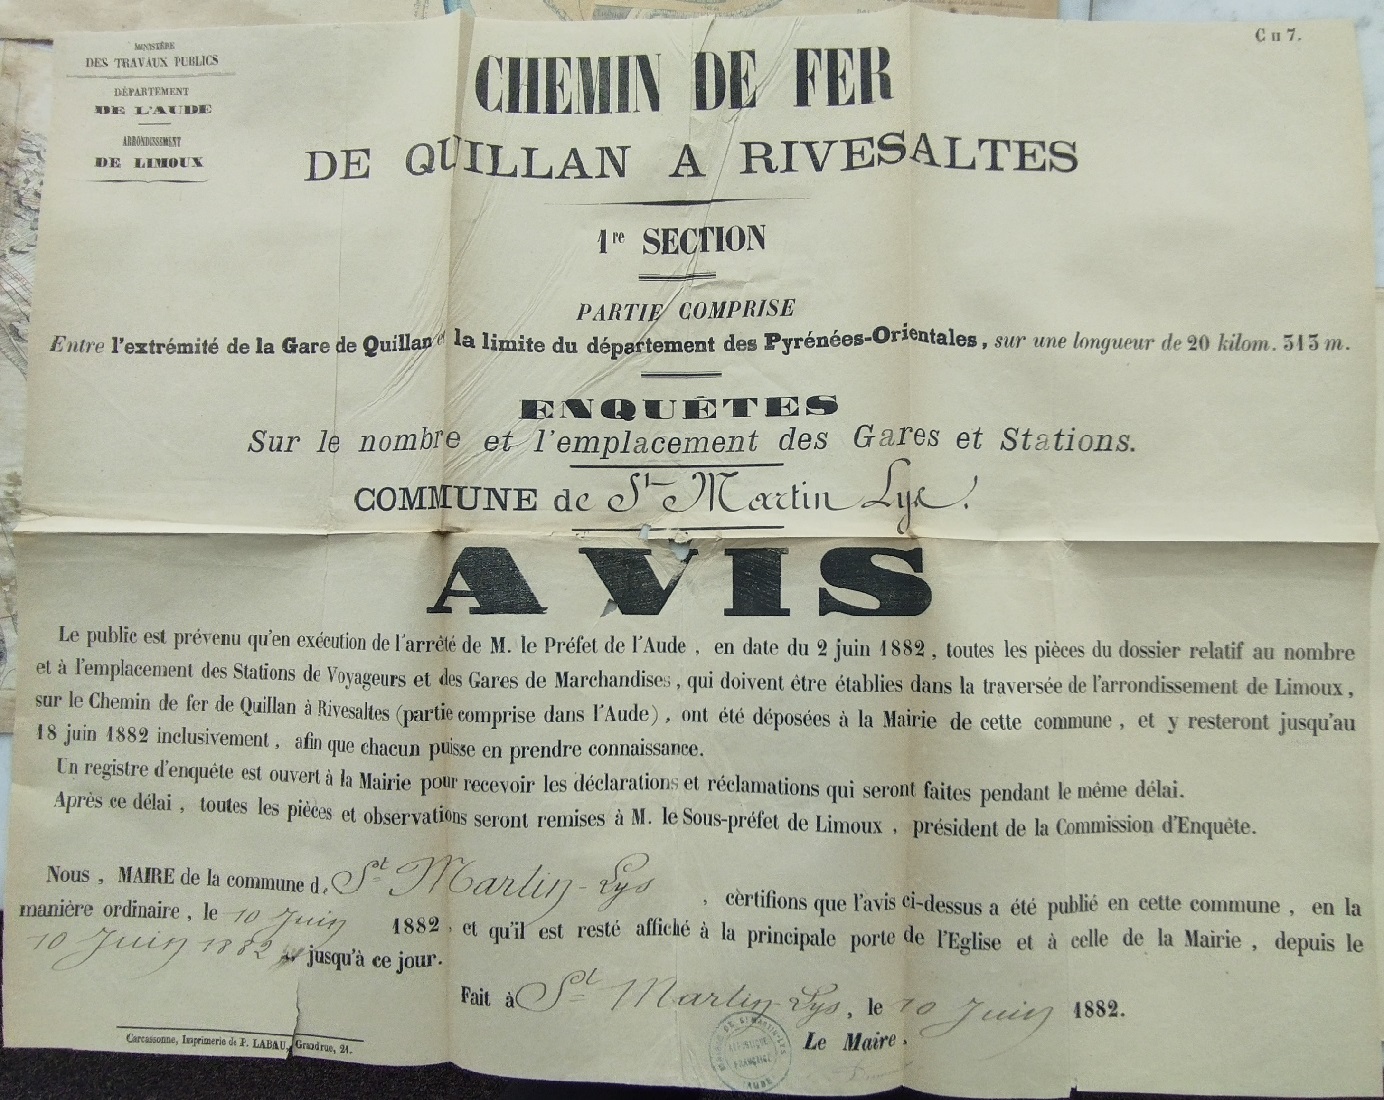 MINISTÈRE
DES TRAVAUX PUBLICS
DÉPARTEMENT
DE L'AUDE
ARRONDISSEMENT
DE LIMOUX
C n 7.
CHEMIN DE FER
DE QUILLAN A RIVESALTES
1re SECTION
PARTIE COMPRISE
Entre l'extrémité de la Gare de Quillan et la limite du département des Pyrénées-Orientales, sur une longueur de 20 kilom. 313 m.
ENQUÊTES
Sur le nombre et l'emplacement des Gares et Stations.
COMMUNE de St Martin Lys
AVIS
Le public est prévenu qu'en exécution de l'arrêté de M. le Préfet de l'Aude, en date du 2 juin 1882, toutes les pièces du dossier relatif au nombre
et à l'emplacement des Stations de Voyageurs et des Gares de Marchandises, qui doivent être établies dans la traversée de l'arrondissement de Limoux,
sur le Chemin de fer de Quillan à Rivesaltes (partie comprise dans l'Aude), ont été déposées à la Mairie de cette commune, et y resteront jusqu'au
18 juin 1882 inclusivement, afin que chacun puisse en prendre connaissance.
Un registre d'enquête est ouvert à la Mairie pour recevoir les déclarations et réclamations qui seront faites pendant le même délai.
Après ce délai, toutes les pièces et observations seront remises à M. le Sous-préfet de Limoux, président de la Commission d'Enquête.
Nous, MAIRE de la commune de St Martin-Lys, cèrtifions que l'avis ci-dessus a été publié en cette commune, en la
manière ordinaire, le 10 Juin 1882, et qu'il est resté affiché à la principale porte de l'Eglise et à celle de la Mairie, depuis le
10 Juin 1882 jusqu'à ce jour.
Fait à St Martin-Lys, le 10 Juin 1882.
Le Maire.
MAIRIE DE ST MARTIN-LYS
RÉPUBLIQUE
FRANÇAISE
AUDE
Carcassonne, Imprimerie de P. LABAU, Grandrue, 21.